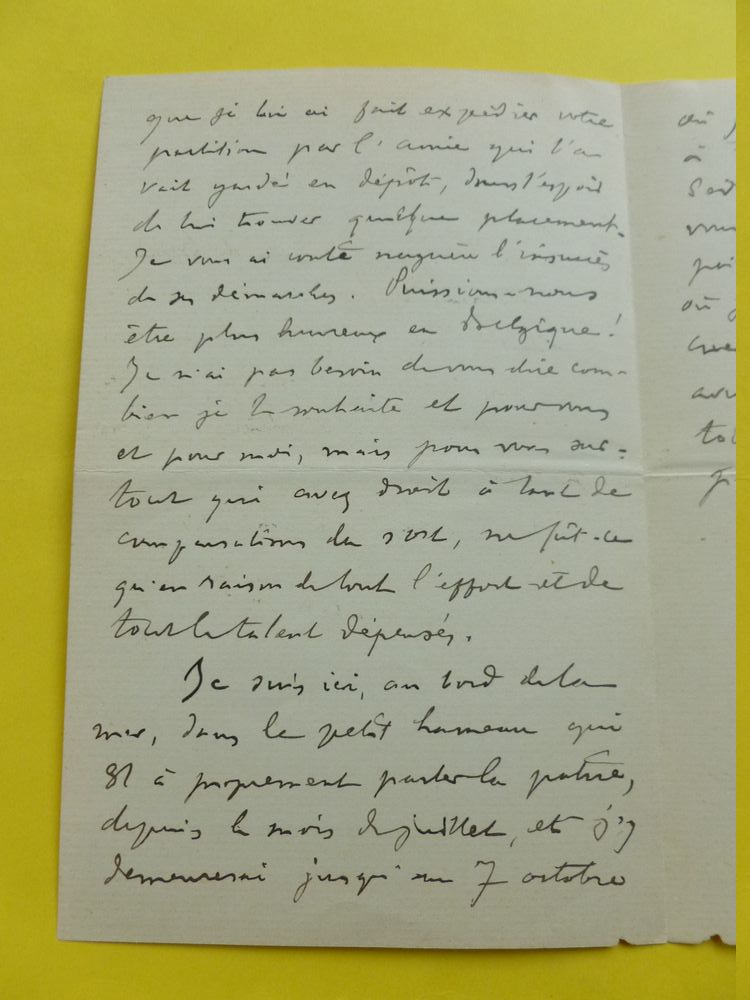 que je lui ai fait expédier votre
partition par l'amie qui l'a-
vait gardé en dépôt, dans l'espoir
de lui trouver quelque placement.
Je vous ai conté naguère l'insuccès
de ses démarches. Puissions-nous
être plus heureux en Belgique!
Je n'ai pas besoin de vous dire com-
bien je le souhaite et pour vous
et pour moi, mais pour vous sur-
tout qui avez droit à tant de
compensations du sort, ne fût-ce
qu'en raison de tout l'effort et de
tout le talent dépensés.
Je suis ici, au bord de la
mer, dans le petit hameau qui
est à proprement parler la patrie,
depuis le mois de juillet, et j'y
demeurerai jusqu'au 7 octobre
où
à
vous
où